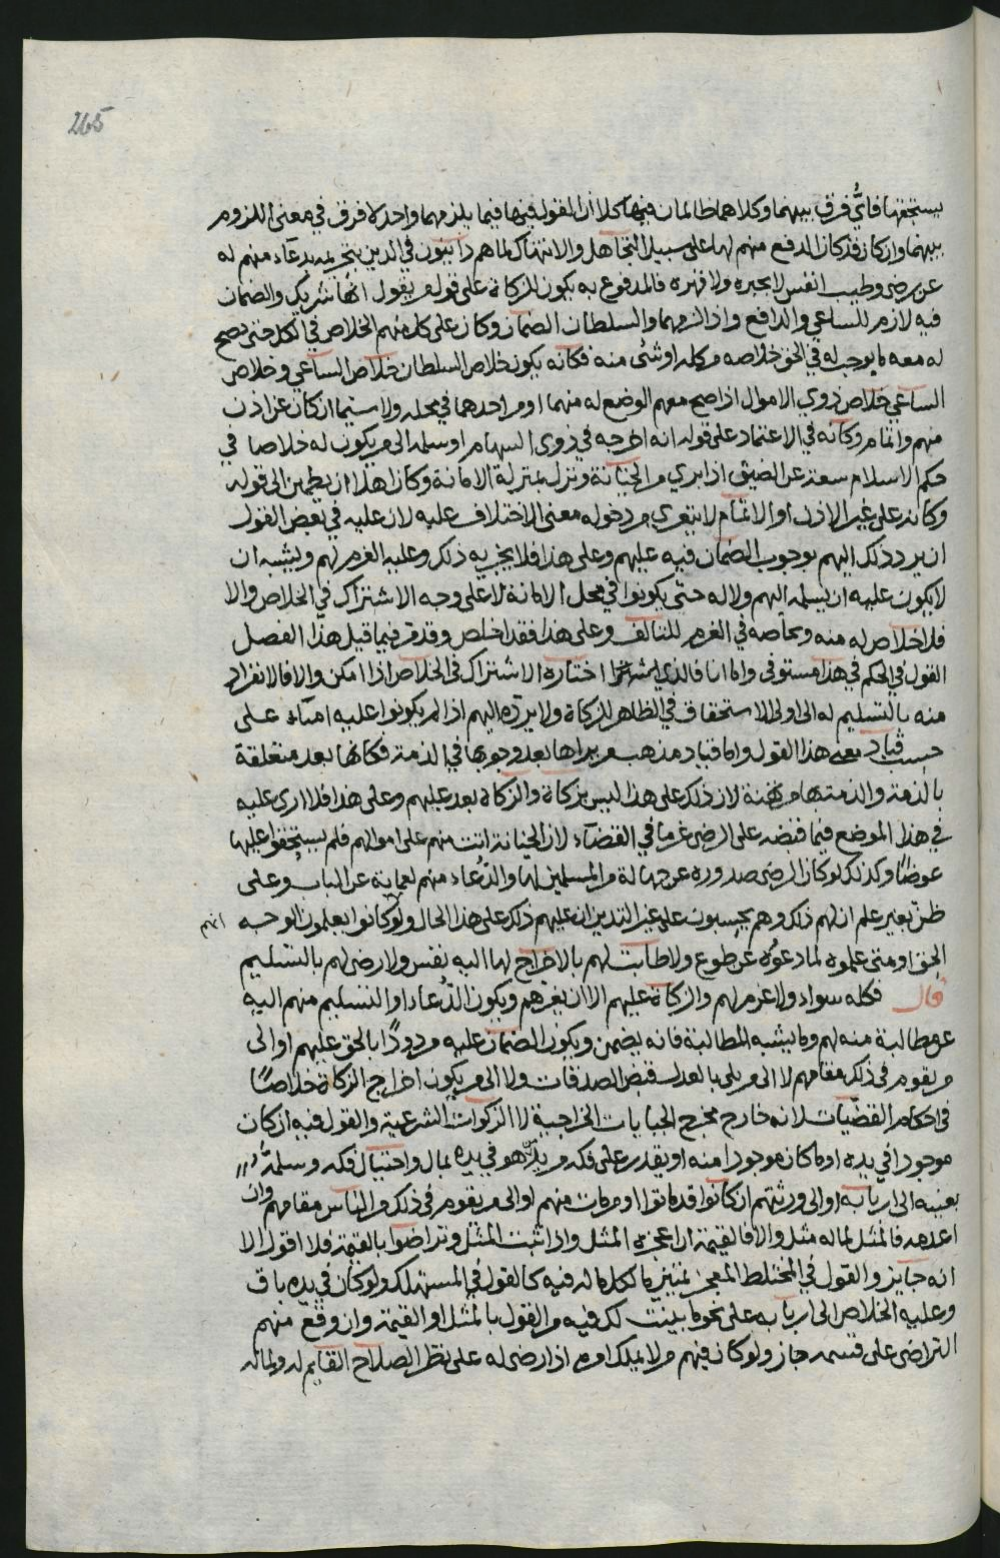 265
يستحقها فايُّ فرق بينهما وكلاهما ظالمان فيها كلا ان القول فيها فيما يلزمهما واحد لا فرق في معنى اللزوم
بينهما وان كان قد كان الدفع منهم لها على سبيل التجاهل والانتهاك لما هم داينون في الدين بتحريمه بدعاء منهم له
عن رضى وطيب انفس لا بجبره ولا قهره فالمدفوع به يكون للزكاة على قول من يقول انها شريك والضمان
فيه لازم للساعي والدافع واذا لزمهما والسلطان الضمان وكان على كل منهم الخلاص في الكل حتى يصح
له معه ما يوجب له في الحق خلاصه من كله او شئ منه فكانه يكون خلاص السلطان خلاص الساعي وخلاص
الساعي خلاص ذوي الاموال اذا صح معهم الوضع له منهما او من احدهما في محله ولا سيما ان كان عن اذن
منهم واتمام وكانه في الاعتماد على قوله انه اخرجه في ذوى السهام او سلمه الى من يكون له خلاصا في
حكم الاسلام سعة عن الضيق اذا بري من الخيانة ونزل بمنزلة الامانة وكان اهلا ان يطمئن الى قوله
وكانه على غير الاذن او الاتمام لا يتعرى من دخوله معنى الاختلاف عليه لان عليه في بعض القول
ان يرد ذلك اليهم بوجوب الضمان فيه عليهم وعلى هذا فلا يجزيه ذلك وعليه الغرم لهم ويشبه ان
لا يكون عليه ان يسلمه اليهم ولا له حتى يكونوا في محل الامانة لا على وجه الاشتراك في الخلاص والا
فلا خلاص له منه ويحاصصه في الغرم للتالف وعلى هذا فقد اخلص وقد مر فيما قيل هذا الفصل
القول في الحكم في هذا مستوفى واما انا فالذي اختاره الاشتراك في الخلاص اذا امكن والا فالانفراد
منه بالتسليم له الى اولى الاستحقاق في الظاهر للزكاة ولا يرده اليهم اذا لم يكونوا عليه امناء على
حسب قياد معنى هذا القول واما قياد مذهب من يراها بعد وجوبها في الذمة فكانها بعد متعلقة
بالذمة والذمة بها مرتهنة لان ذلك على هذا ليس بزكاة والزكاة بعد عليهم وعلى هذا فلا ارى عليه
في هذا الموضع فيما قبضه على الرضى غرما في القضاء لان الخيانة اتت منهم على اموالهم فلم يستحقوا عليها
عوضًا وكذلك لو كان الرضى صدوره عن جهالة من المسلمين لها والدُّعاء منهم لعماية عن الباب وعلى
ظن بغير علم ان لهم ذلك وهم يحسبون على غير التدين ان عليهم ذلك على هذا الحال ولو كانوا يعلمون الوجه
الحق او متى علموه لما دعوه عن طوع ولا طابت لهم بالاخراج لها اليه نفس ولا رضى لهم بالتسليم
قال فكله سواء ولا غرم لهم والزكاة عليهم الا ان يغرهم ويكون الدُّعاء او التسليم منهم اليه
عن مطالبة منه لهم وما يشبه المطالبة فانه يضمن ويكون الضمان عليه مردودًا بالحق عليهم او الى
من يقوم في ذلك مقامهم لا الى من يلى بالعدل قبض الصدقات ولا الى من يكون اخراج الزكاة خلاصًا
في احكام القضيات لانه خارج مخرج الجبايات الخراجية لا الزكوات الشرعية والقول فيه ان كان
موجودا في يده او ما كان موجودا منه او يقدر على فكه من يد من هو في يده بمال واحتيال فكه وسلمهُ
بعينه الى اربابه او الى ورثتهم ان كانوا قد ماتوا او من مات منهم او الى من يقوم في ذلك من الناس مقامهم وان
اعدمه فالمثل لماله مثل والا فالقيمة ان اعجزه المثل واذا ثبت المثل وتراضوا بالقيمة فلا اقول الا
انه جايز والقول في المختلط المعجز تمييز ما لكل ماله فيه كالقول في المستهلك ولو كان في يده باق
وعليه الخلاص الى اربابه على نحو ما بينت لك فيه من القول بالمثل او القيمة وان وقع منهم
التراضى على قسمه جاز ولو كان فيهم من لا يملك امره اذا رضى له على نظر الصلاح القايم له ولماله